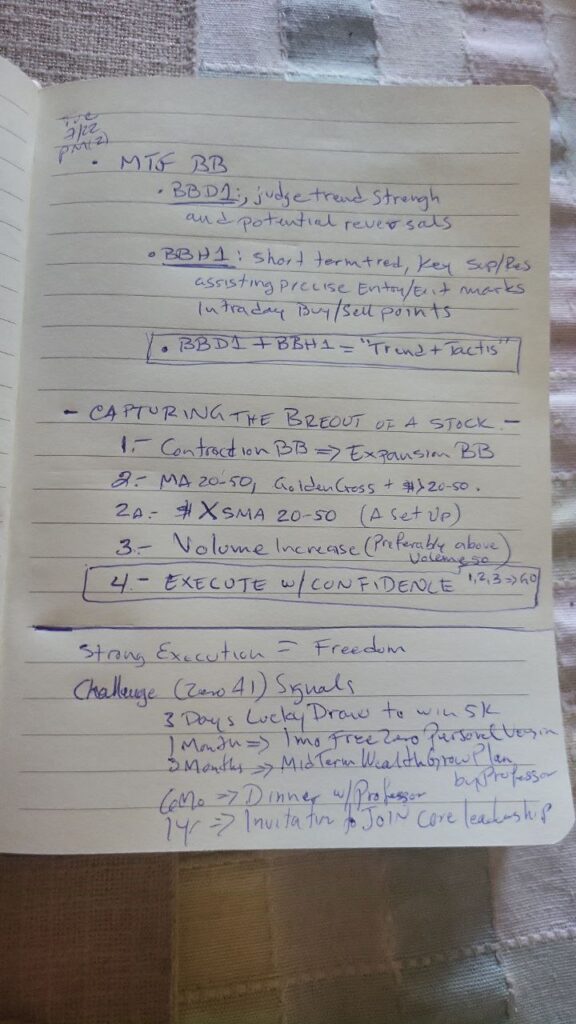 Tue
7/22
PM(2)
• MTF BB
• BBD1:, judge trend Strengh
and potential reversals
• BBH1: Short term tred, Key Sup/Res
assisting precise Entry/Exit marks
Intraday Buy/Sell points
• BBD1 + BBH1 = "Trend + Tactis"
- CAPTURING THE BREOUT OF A STOCK. -
1.- Contraction BB => Expansion BB
2.- MA 20-50, Golden Cross + $ > 20-50.
2A.- $ X SMA 20-50 (A Set Up)
3.- Volume Increase (Preferably above)
Volume 50
4.- EXECUTE W/ CONFIDENCE 1,2,3 => GO
Strong Execution = Freedom
Challenge (Zero 41) Signals
3 Days Lucky Draw to win 5K
1 Month => 1 mo Free Zero Personal Version
3 Months => Mid Term Wealth Grow Plan
by Professor
6 Mo => Dinner w/ Professor
1 yr => Invitation to JOIN core leadership